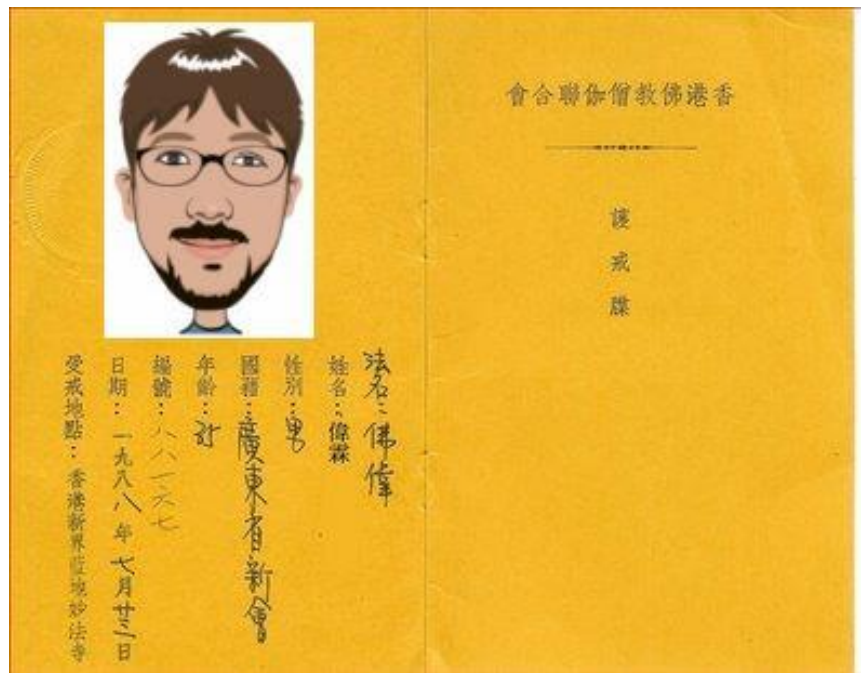 香港佛教僧伽聯合會
護戒牒
法名：佛偉
姓名：偉霖
性別：男
國籍：廣東省新會
年齡：
編號：八八一六七
日期：一九八八年七月廿三日
受戒地點：香港新界藍地妙法寺